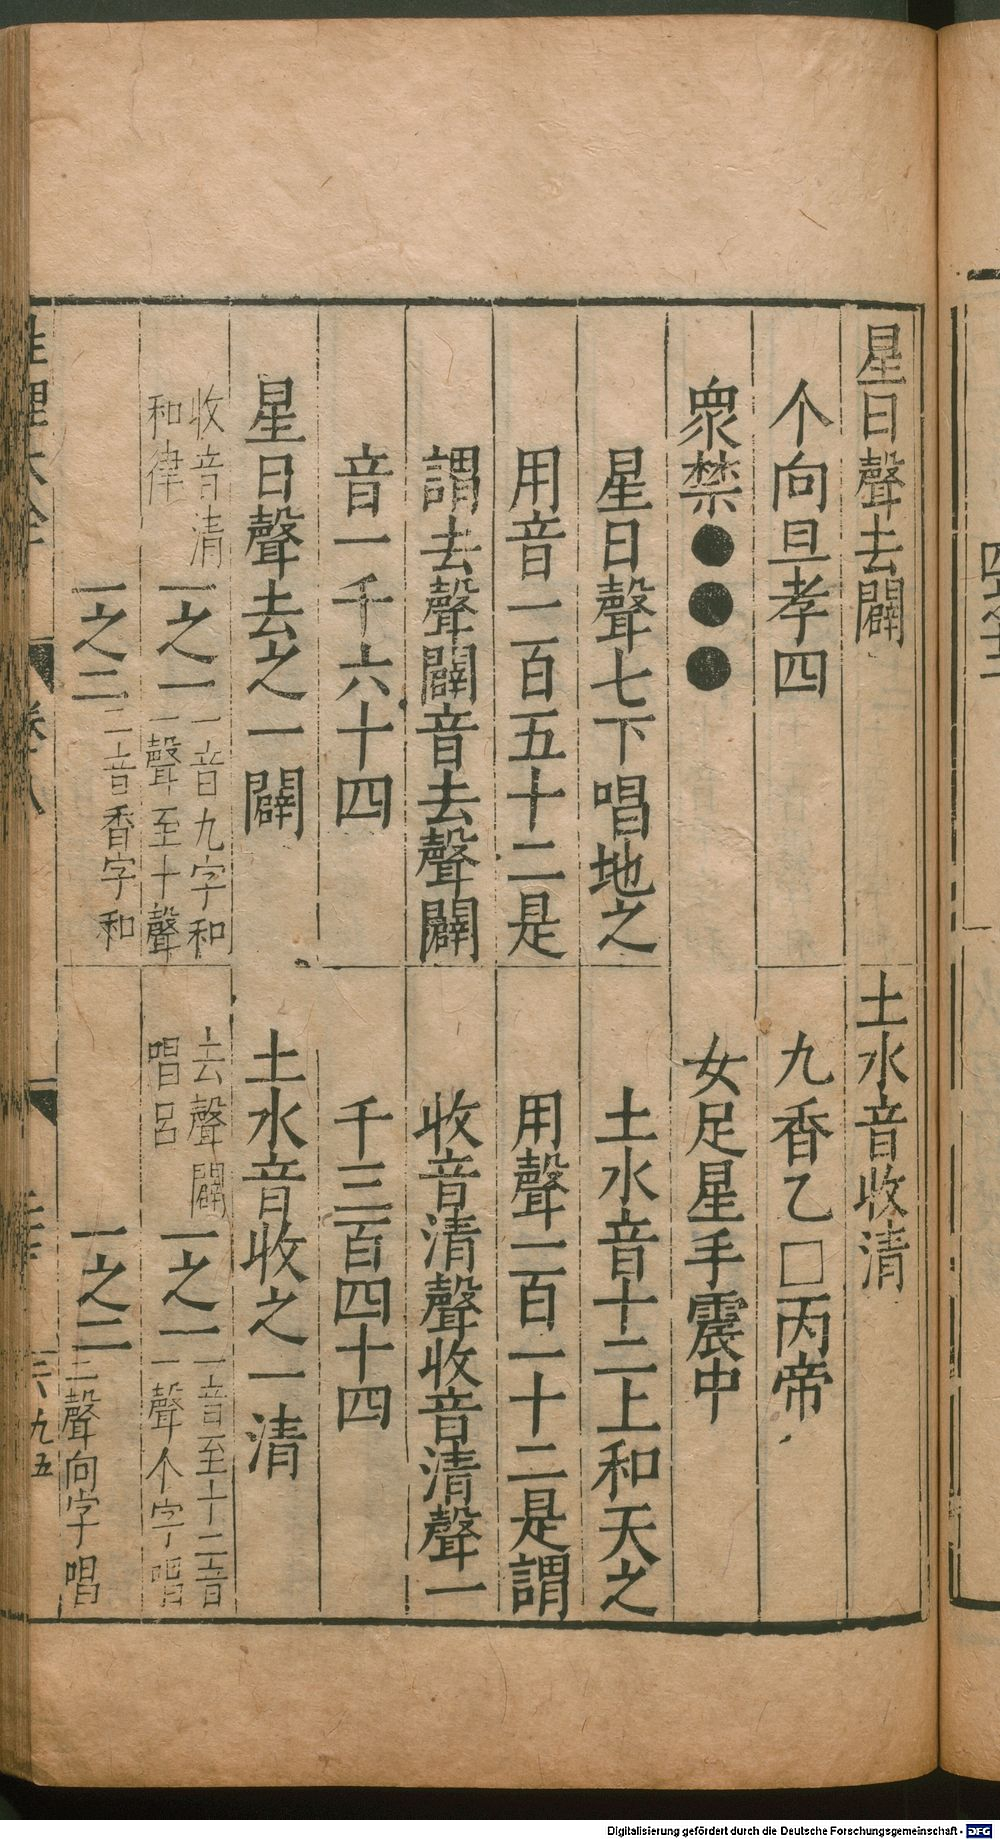 星日聲去闢
土水音收清
个向旦孝四
九香乙□丙帝
衆禁●●●
女足星手震中
星日聲七下唱地之
土水音十二上和天之
用音一百五十二是
用聲一百一十二是謂
謂去聲闢音去聲闢
收音清聲收音清聲一
音一千六十四
千三百四十四
星日聲去之一闢
土水音收之一清
收音清
和律
一之一
一音九字和
一聲至十聲
去聲闢
唱呂
一之一
一音至十二音
一聲个字唱
一之二
二音香字和
一之二
二聲向字唱
性理大全
卷八
六九五
Digitalisierung gefördert durch die Deutsche Forschungsgemeinschaft - DFG